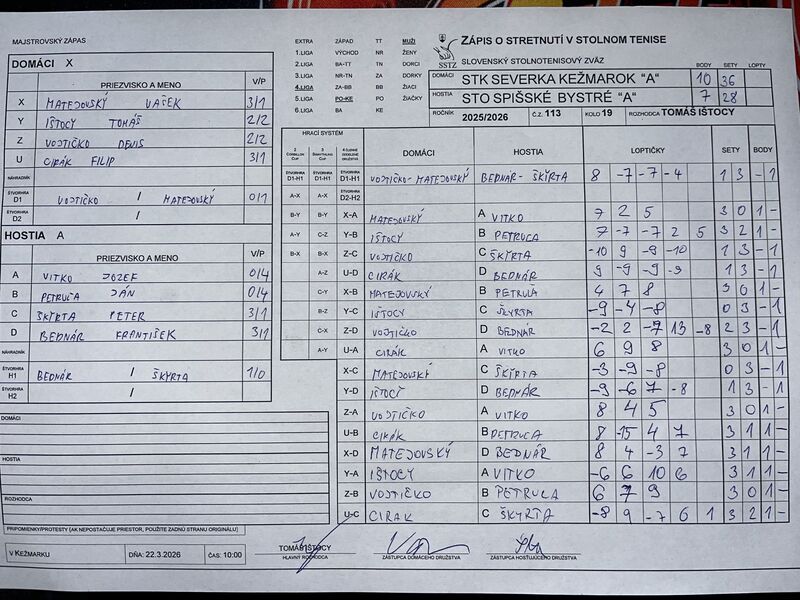 MAJSTROVSKÝ ZÁPAS
EXTRA ZÁPAD TT MUŽI
1.LIGA VÝCHOD NR ŽENY
2.LIGA BA-TT TN DORCI
3.LIGA NR-TN ZA DORKY
4.LIGA ZA-BB BB ŽIACI
5.LIGA PO-KE PO ŽIAČKY
6.LIGA BA KE
SSTZ
ZÁPIS O STRETNUTÍ V STOLNOM TENISE
SLOVENSKÝ STOLNOTENISOVÝ ZVÄZ
BODY SETY LOPTY
DOMÁCI STK SEVERKA KEŽMAROK "A" 10 36
HOSTIA STO SPIŠSKÉ BYSTRÉ "A" 7 28
ROČNÍK 2025/2026 Č.Z. 113 KOLO 19 ROZHODCA TOMÁŠ IŠTOCY
DOMÁCI X
PRIEZVISKO A MENO V/P
X MATEJOVSKÝ VAŠEK 3/1
Y IŠTOCY TOMÁŠ 2/2
Z VOJTIČKO DENIS 2/2
U CIRÁK FILIP 3/1
NÁHRADNÍK
ŠTVORHRA D1 VOJTIČKO / MATEJOVSKÝ 0/1
ŠTVORHRA D2 /
HOSTIA A
PRIEZVISKO A MENO V/P
A VITKO JOZEF 0/4
B PETRUĽA JÁN 0/4
C ŠKÝRTA PETER 3/1
D BEDNÁR FRANTIŠEK 3/1
NÁHRADNÍK
ŠTVORHRA H1 BEDNÁR / ŠKÝRTA 1/0
ŠTVORHRA H2 /
DOMÁCI
HOSTIA
ROZHODCA
PRIPOMIENKY/PROTESTY (AK NEPOSTAČUJE PRIESTOR, POUŽITE ZADNÚ STRANU ORIGINÁLU)
V KEŽMARKU DŇA: 22.3.2026 ČAS: 10:00
HRACÍ SYSTÉM
DOMÁCI HOSTIA LOPTIČKY SETY BODY
ŠTVORHRA D1-H1 ŠTVORHRA D1-H1 ŠTVORHRA D1-H1 VOJTIČKO-MATEJOVSKÝ BEDNÁR-ŠKÝRTA 8 -7 -7 -4 1 3 - 1
A-X A-X ŠTVORHRA D2-H2
B-Y B-Y X-A MATEJOVSKÝ A VITKO 7 2 5 3 0 1 -
A-Y C-Z Y-B IŠTOCY B PETRUĽA 7 -7 -7 2 5 3 2 1 -
B-X B-X Z-C VOJTIČKO C ŠKÝRTA -10 9 -9 -10 1 3 - 1
A-Z U-D CIRÁK D BEDNÁR 9 -9 -9 -9 1 3 - 1
C-Y X-B MATEJOVSKÝ B PETRUĽA 4 7 8 3 0 1 -
B-Z Y-C IŠTOCY C ŠKÝRTA -9 -4 -8 0 3 - 1
C-X Z-D VOJTIČKO D BEDNÁR -2 2 -7 13 -8 2 3 - 1
A-Y U-A CIRÁK A VITKO 6 9 8 3 0 1 -
X-C MATEJOVSKÝ C ŠKÝRTA -3 -9 -8 0 3 - 1
Y-D IŠTOCY D BEDNÁR -9 -6 7 -8 1 3 - 1
Z-A VOJTIČKO A VITKO 8 4 5 3 0 1 -
U-B CIRÁK B PETRUĽA 8 -15 4 7 3 1 1 -
X-D MATEJOVSKÝ D BEDNÁR 8 4 -3 7 3 1 1 -
Y-A IŠTOCY A VITKO -6 6 10 6 3 1 1 -
Z-B VOJTIČKO B PETRUĽA 6 7 9 3 0 1 -
U-C CIRÁK C ŠKÝRTA -8 9 -7 6 1 3 2 1 -
TOMÁŠ IŠTOCY
HLAVNÝ ROZHODCA
ZÁSTUPCA DOMÁCEHO DRUŽSTVA
ZÁSTUPCA HOSŤUJÚCEHO DRUŽSTVA